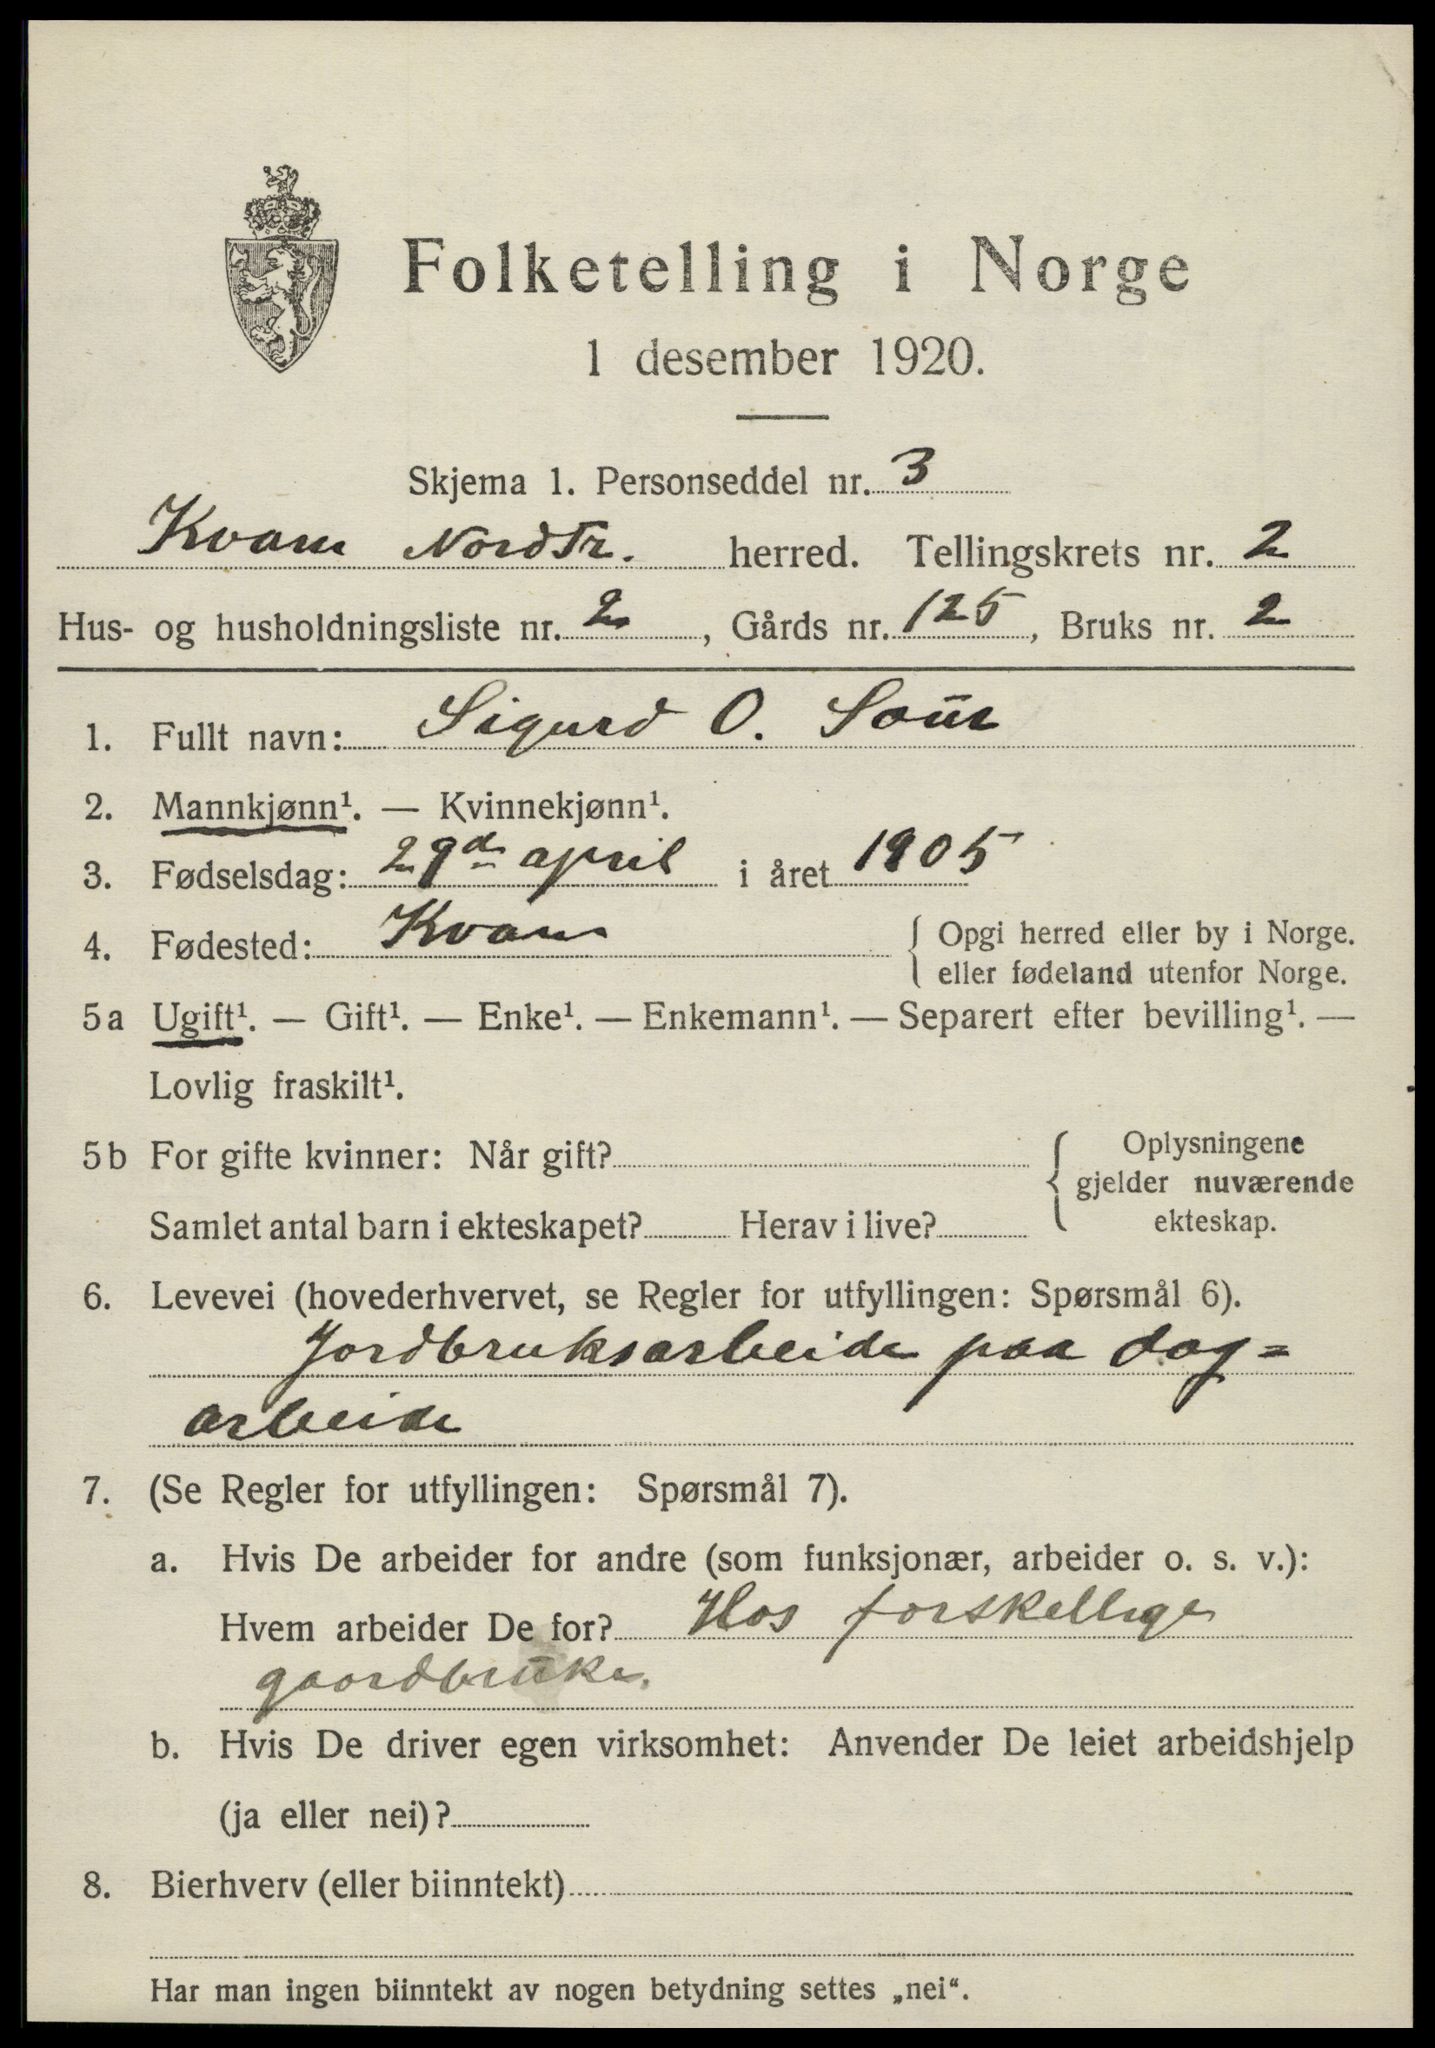 Folketelling i Norge
1 desember 1920.
Skjema 1. Personseddel nr. 3
Kvam Nordtr. herred. Tellingskrets nr. 2
Hus- og husholdningsliste nr. 2, Gårds nr. 125, Bruks nr. 2
1. Fullt navn: Sigurd O.
2. Mannkjønn¹. — Kvinnekjønn¹.
3. Fødselsdag: 29de april i året 1905
4. Fødested: Kvam { Opgi herred eller by i Norge.
eller fødeland utenfor Norge.
5a Ugift¹. — Gift¹. — Enke¹. — Enkemann¹. — Separert efter bevilling¹. —
Lovlig fraskilt¹.
5b For gifte kvinner: Når gift? { Oplysningene
gjelder nuværende
Samlet antal barn i ekteskapet? Herav i live? ekteskap.
6. Levevei (hovederhvervet, se Regler for utfyllingen: Spørsmål 6).
Jordbruksarbeide paa dag=
arbeide
7. (Se Regler for utfyllingen: Spørsmål 7).
a. Hvis De arbeider for andre (som funksjonær, arbeider o. s. v.):
Hvem arbeider De for? Hos forskellige
gaardbruke.
b. Hvis De driver egen virksomhet: Anvender De leiet arbeidshjelp
(ja eller nei)?
8. Bierhverv (eller biinntekt)
Har man ingen biinntekt av nogen betydning settes „nei“.